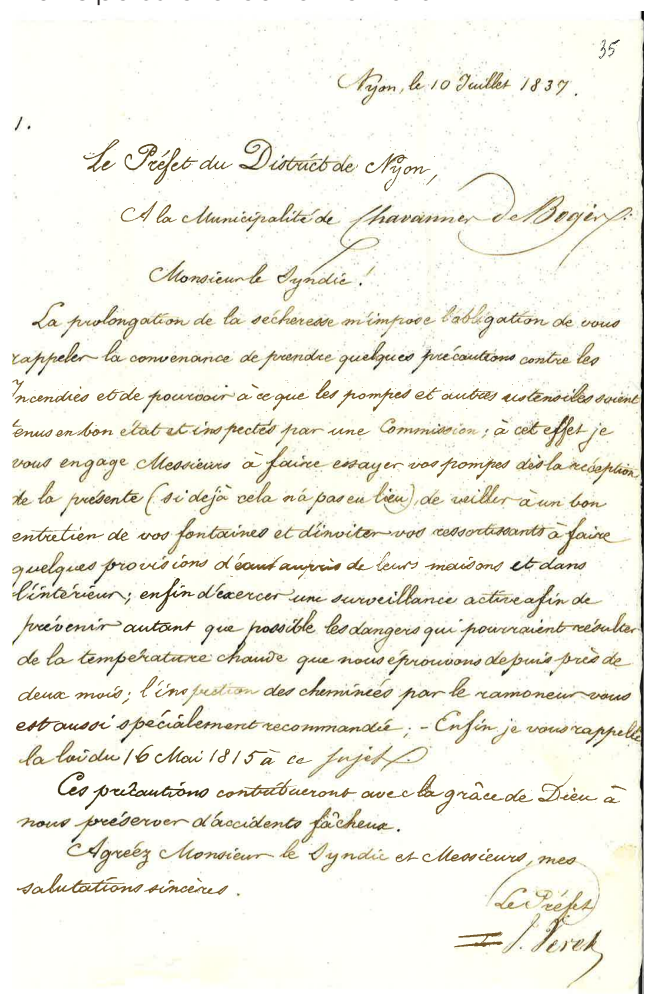 35
Nyon, le 10 Juillet 1837.
1.
Le Préfet du District de Nyon,
A la Municipalité de Chavannes de Bogis.
Monsieur le Syndic!
La prolongation de la sécheresse m'impose l'obligation de vous
rappeler la convenance de prendre quelques précautions contre les
Incendies et de pourvoir à ce que les pompes et autres ustensiles soient
tenus en bon état et inspectés par une Commission; à cet effet je
vous engage Messieurs à faire essayer vos pompes dès la réception
de la présente (si déjà cela n'a pas eu lieu), de veiller à un bon
entretien de vos fontaines et d'inviter vos ressortissants à faire
quelques provisions d'eau auprès de leurs maisons et dans
l'intérieur; enfin d'exercer une surveillance active afin de
prévenir autant que possible les dangers qui pourraient résulter
de la température chaude que nous éprouvons depuis près de
deux mois; l'inspection des cheminées par le ramoneur vous
est aussi spécialement recommandée; - Enfin je vous rappelle
la loi du 16 Mai 1815 à ce sujet.
Ces précautions contribueront avec la grâce de Dieu à
nous préserver d'accidents fâcheux.
Agréez Monsieur le Syndic et Messieurs, mes
salutations sincères.
Le Préfet